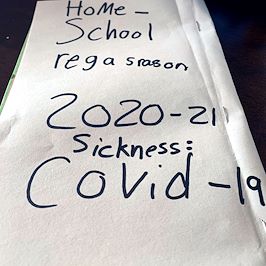 Home -
School
rega srason
2020-21
Sickness:
Covid-19